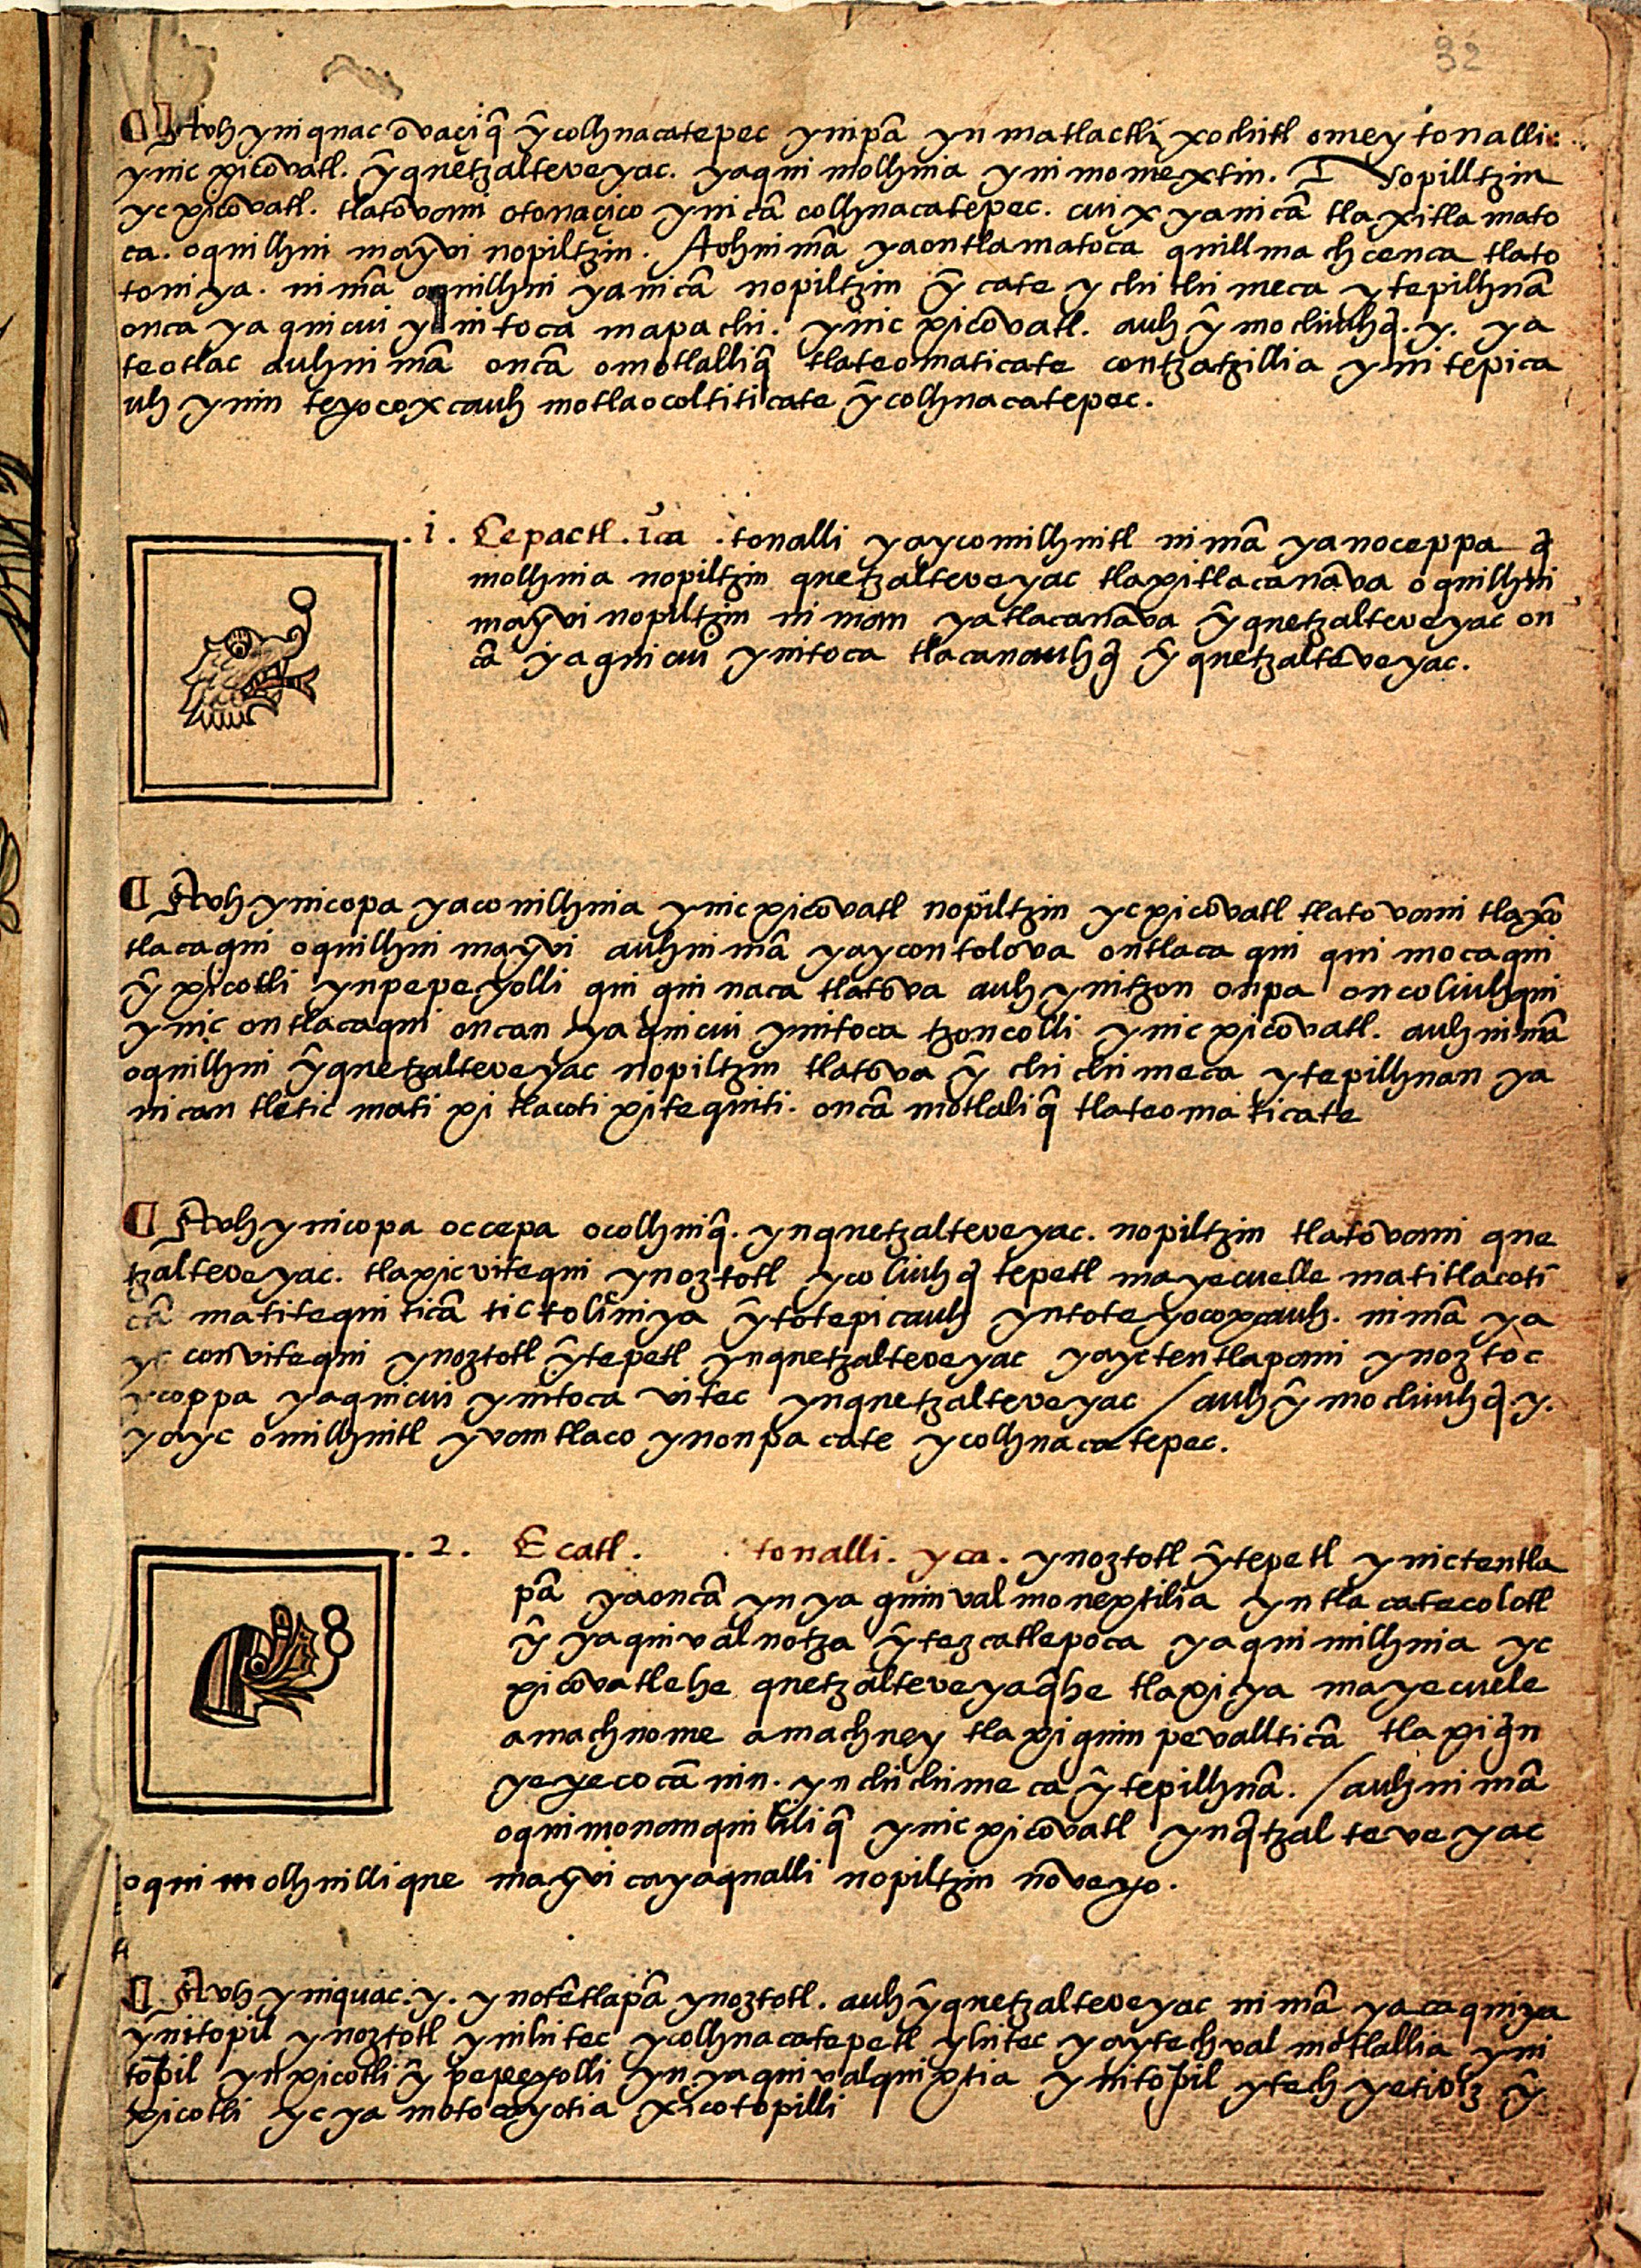 32
Auh yniquac ovaçiq̄ ȳcolhuacatepec ynipā yn matlactli xochitl omey tonalli
ynic xicōvatl. ȳquetzalteveyac. yaqui molhuia ynimomextin. Nopilltzin
ycxicōvatl. tlatōvani otonaçico ynicā colhuacatepec. cuix yanicā tlaxitlamato
ca. oquilhui maỹvi nopiltzin. Auhnimā yaontlamatoca quillmachcenca tlato
toniya. nimā oquilhui yanicā nopiltzin ȳ cate ychichimeca ytepilhuā
oncā yaquicui ynitoca mapachi. ynic xicōvatl. auh ȳ mochiuhq̄. y. ya
teotlac auhnimā oncā omotlalliq̄ tlateomaticate contzatzillia ynitepica
uh ynin teyocoxcauh motlaocoltiticate ȳcolhuacatepec.
.i. Cepactl. ica. tonalli yaycomilhuitl nimā yanoceppa q̄
molhuia nopiltzin quetzalteveyac tlaxitlacanāva oquilhui
maỹvi nopiltzin niman yatlacanāva ȳquetzalteveyac on
cā yaquicui ynitoca tlacanauhq̄ ȳ quetzaltēveyac.
Auh ynicopa yaconilhuia ynicxicōvatl nopiltzin ycxicōvatl tlatovani tlaxō
tlacaqui oquilhui maỹvi auhnimā yaycontolova ontlacaqui quimocaqui
ȳ xicotli ynpepeyolli quiquinaca tlatōva auh ynitzon onpa oncoliuhqui
ynic ontlacaqui oncan yaquicui ynitoca tzoncolli ynic xicōvatl. auhnimā
oquilhui ȳquetzalteveyac nopiltzin tlatōva ȳ chichimeca ytepilhuan ya
nican tlētic mati xi tlacoti xitequiti. oncā motlaliq̄ tlateomaticate
Auh ynicopa occepa ocolhuiq̄. ynquetzalteveyac. nopiltzin tlatōvani que
tzalteveyac. tlaxicvitequi ynoztotl ycoliuhq̄ tepetl mayecuelle matitlacoti
cā matitequiticā tictoliniya ȳtotepicauh yntoteyocoxcauh. nimā ya
yc convitequi ynoztotl ȳtepetl ynquetzalteveyac yayctentlapani ynoztoc
ycoppa yaquicui ynitoca vitec ynquetzalteveyac / auh ȳ mochiuhq̄. y.
yayc omilhuitl yvantlaco ynonpa cate ycolhuacatepec.
.2. Ecatl. tonalli. yca. ynoztotl ȳtepetl ynictentla
pā yaoncā yn ya quinvalmonextilia yntlacatecolotl
ȳ yaquivalnotza ȳtezcatlepoca yaquimilhuia yc
xicōvatlehe quetzalteveyaq̄he tlaxiya mayecuele
amachnome amachney tlaxiquin pevallticā tlaxiq̄n
yeyecocā nin. yn chichimeca ȳtepilhuā. / auhnimā
oquimonanquililiq̄ ynic xicōvatl ynq̄tzalteveyac
oquimolhuillique maỹvi cayaqualli nopiltzin nōveyo.
Auh yniquac. y. ynotētlapā ynoztotl. auh ȳquetzalteveyac nimā yacaquiya
ynitopil ynoztotl ynihitec ycolhuacatepetl yhitec yaytechvalmotlallia yni
topil ynxicotli ȳ pepeyolli yn yaquivalquixtia ynitopil ytech yetivitz ȳ
xicotli yc ya motocayotia xicotopilli